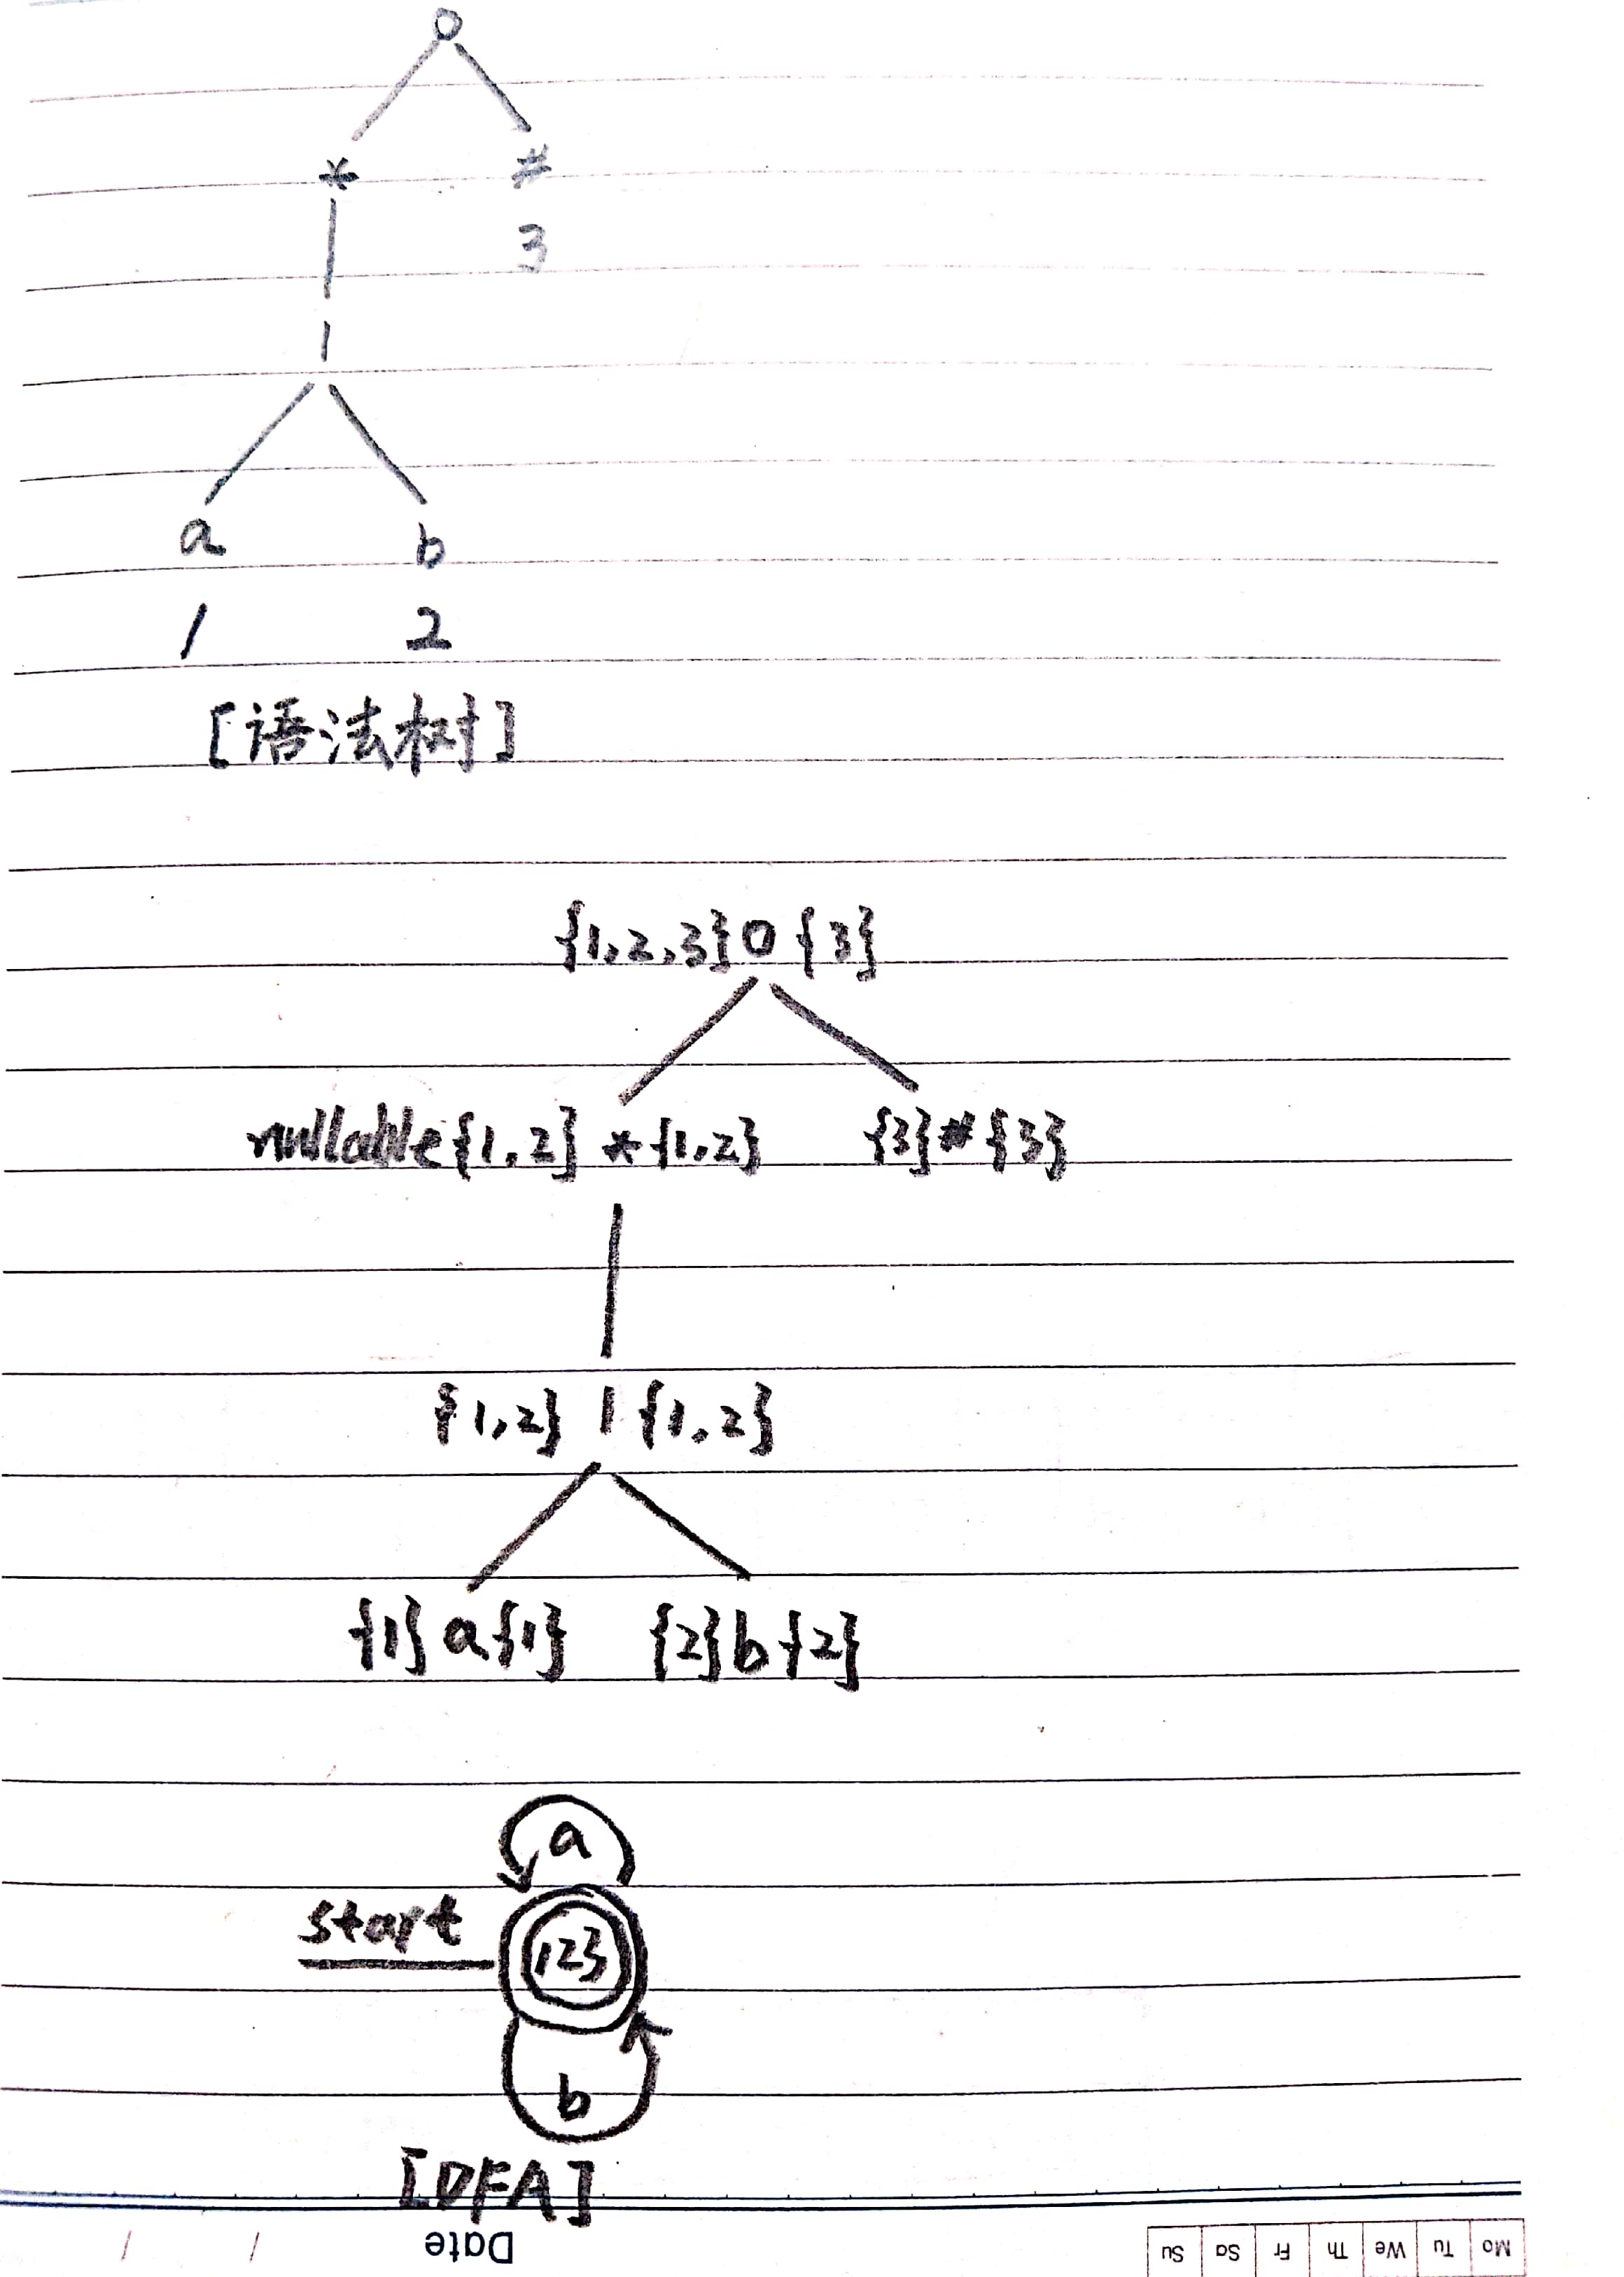 o
* #
3
|
a b
1 2
[语法树]
{1,2,3} o {3}
nullable {1,2} * {1,2} {3} # {3}
{1,2} | {1,2}
{1} a {1} {2} b {2}
a
start
123
b
[DFA]
Date / /
Mo Tu We Th Fr Sa Su